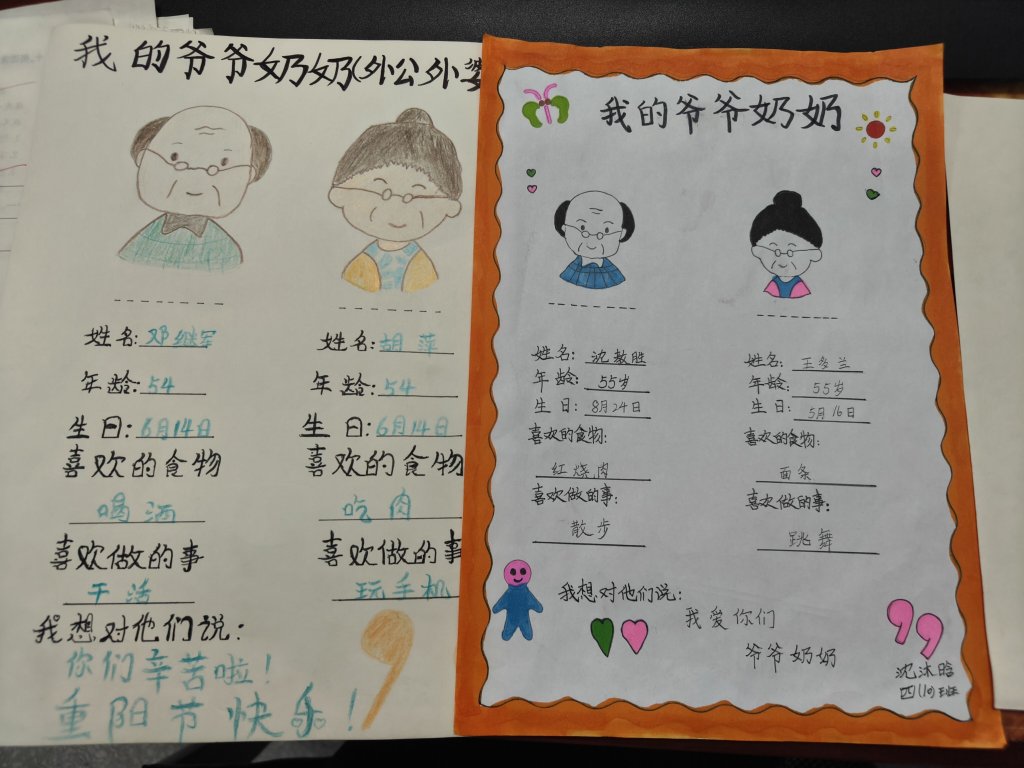 我的爷爷奶奶(外公外婆
姓名:邓继军
年龄:54
生日:6月14日
喜欢的食物
喝酒
喜欢做的事
干活
姓名:胡萍
年龄:54
生日:6月14日
喜欢的食物
吃肉
喜欢做的事
玩手机
我想对他们说:
你们辛苦啦!
重阳节快乐!
我的爷爷奶奶
姓名:沈教胜
年龄:55岁
生日:8月24日
喜欢的食物:
红烧肉
喜欢做的事:
散步
姓名:王多兰
年龄:55岁
生日:5月16日
喜欢的食物:
面条
喜欢做的事:
跳舞
我想对他们说:
我爱你们
爷爷奶奶
沈沐晗
四(10)班